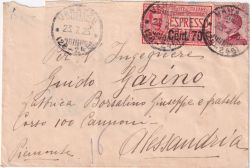 ESPRESSO
Cent. 70
Per Ingegnere
Guido Garino
fabbrica Borsalino Giuseppe e fratello
Corso 100 Cannoni
Alessandria
Piemonte